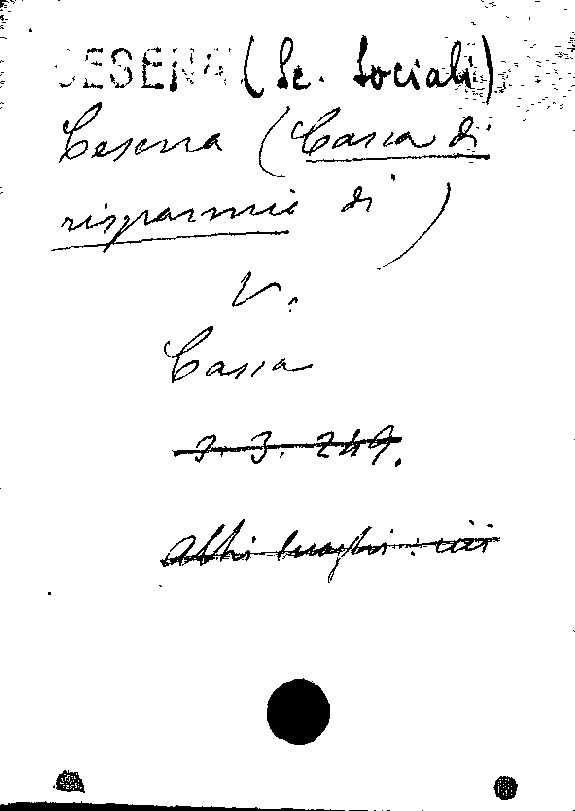 CESENA (Sc. Sociali)
Cesena (Cassa di
risparmio di)
V.
Cassa
3. 3. 249.
Altri luoghi: ivi